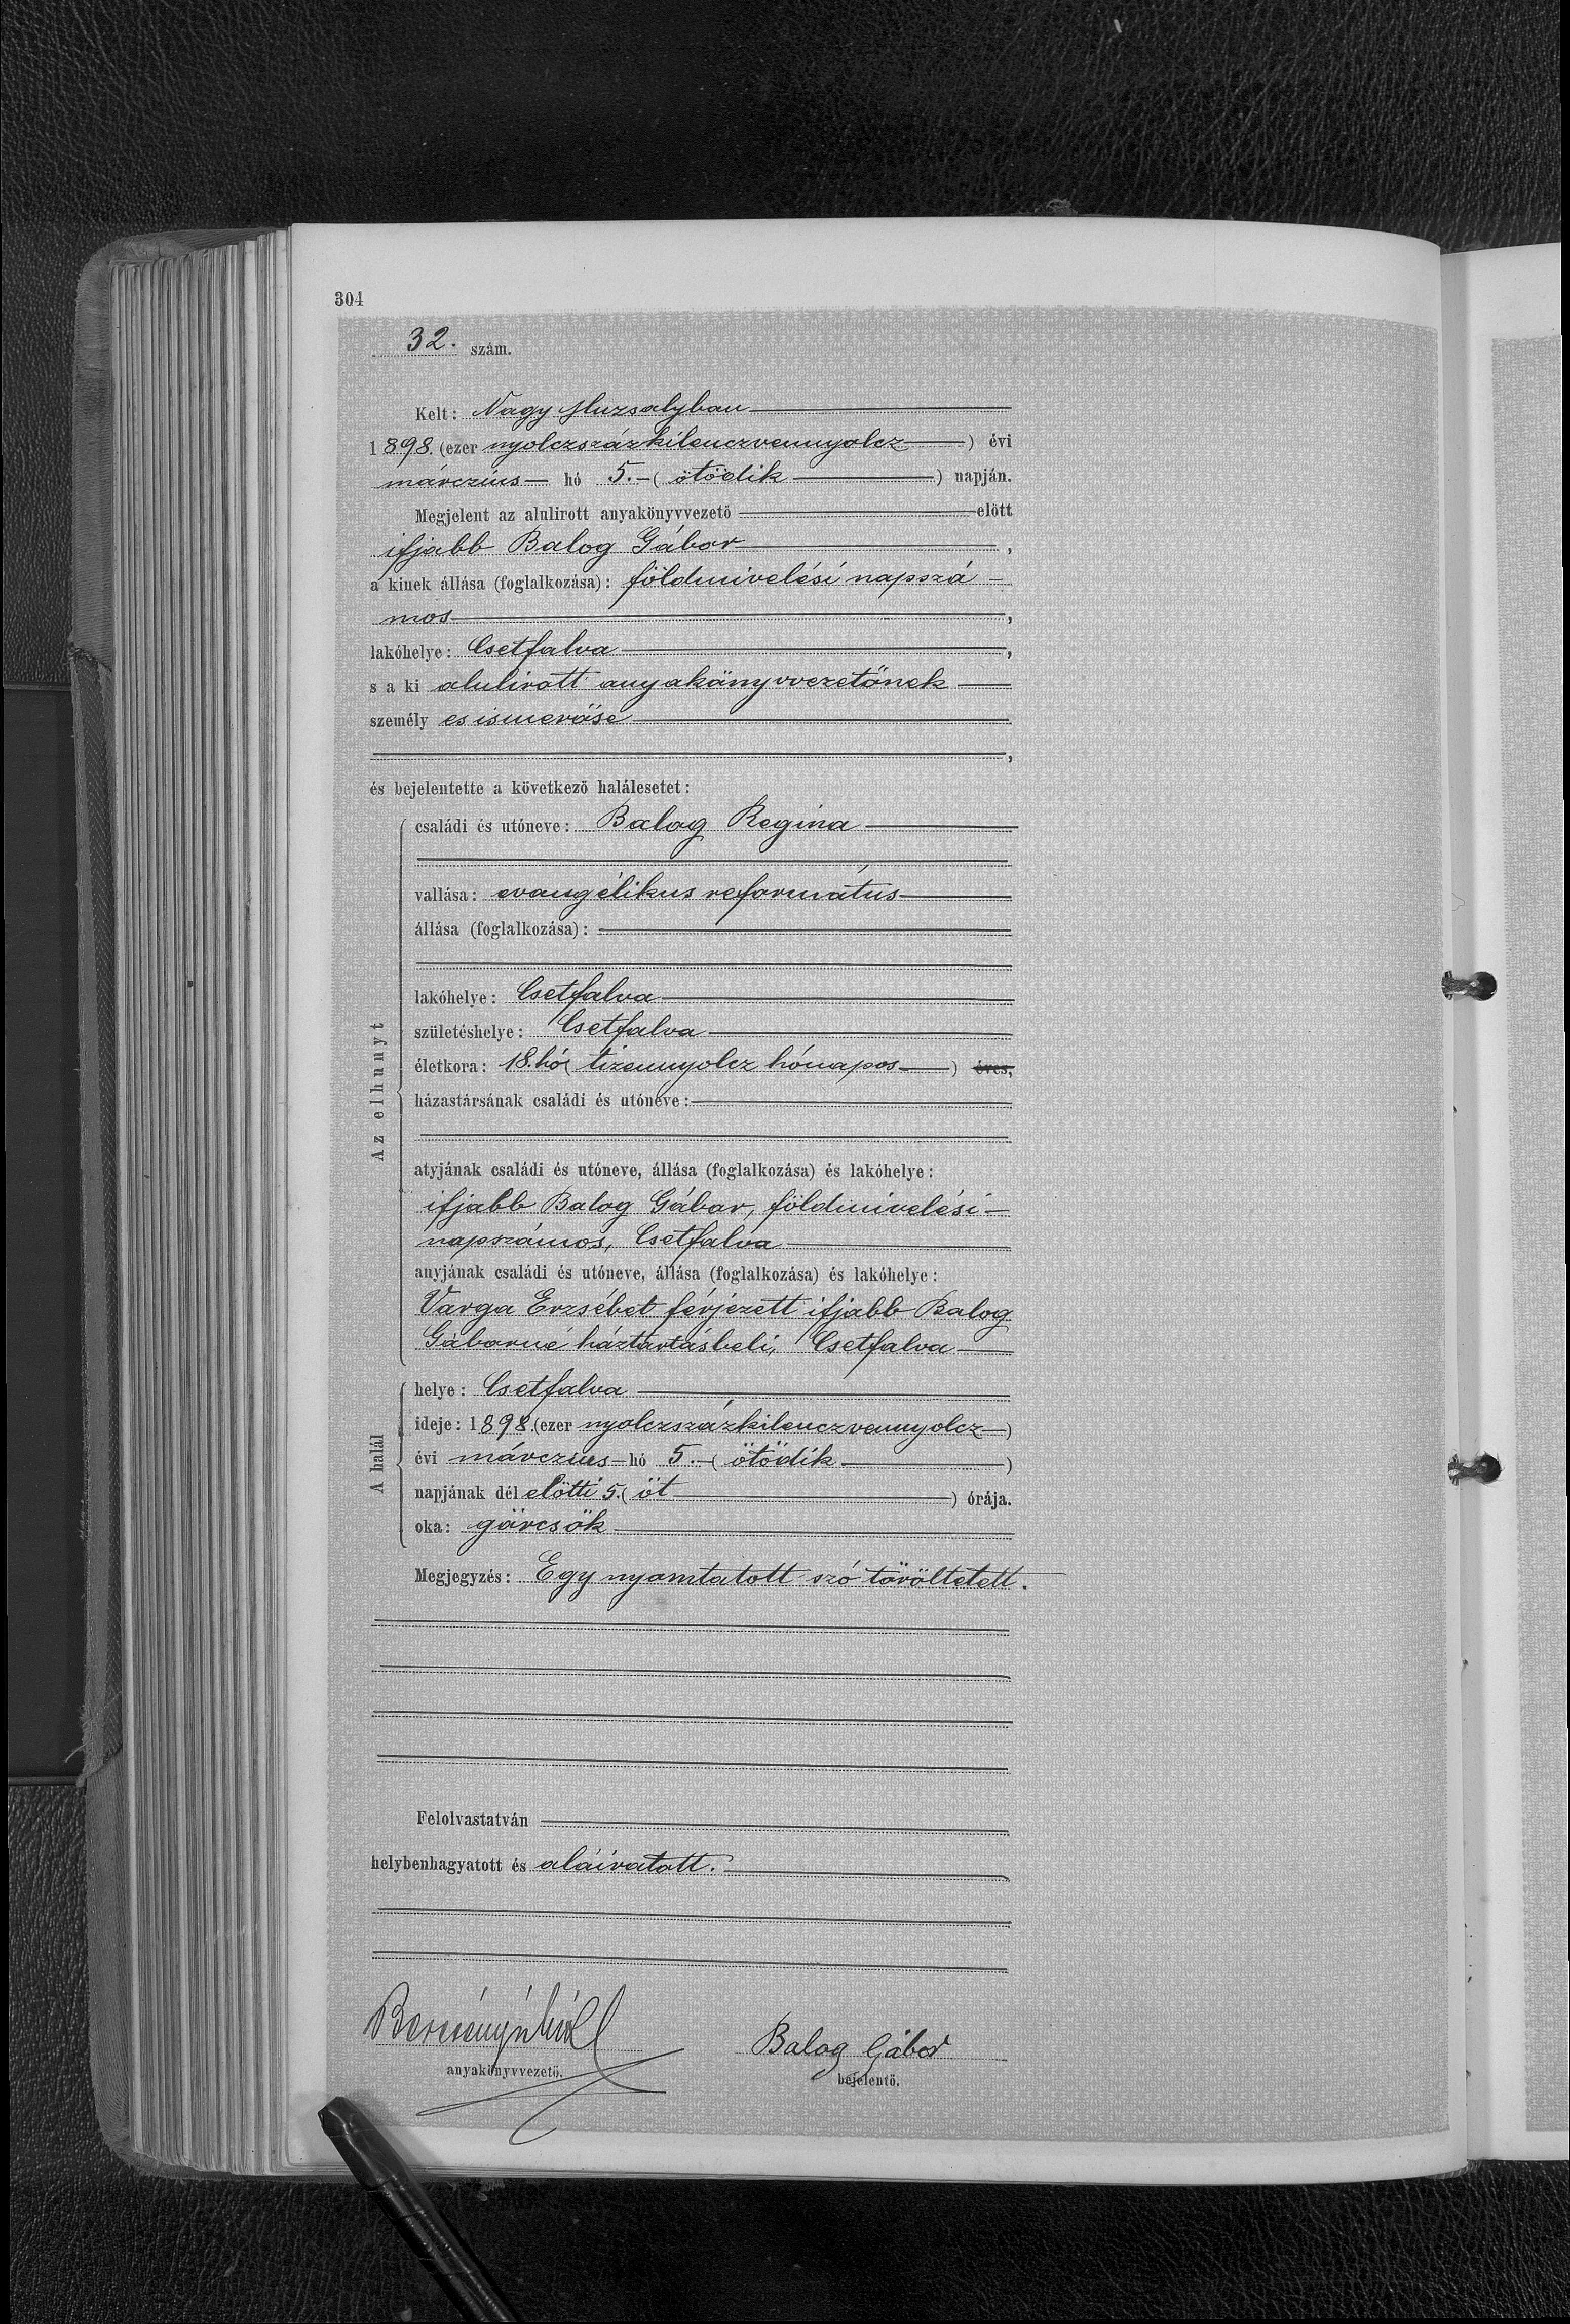 304
32. szám.
Kelt: Nagy Muzsalyban
1898. (ezer nyolczszázkilenczvennyolcz) évi
márczius hó 5. (ötödik) napján.
Megjelent az alulirott anyakönyvvezető előtt
ifjabb Balog Gábor,
a kinek állása (foglalkozása): földmivelési napszá-
mos,
lakóhelye: Csetfalva,
s a ki alulirott anyakönyvvezetőnek
személyes ismerőse
,
és bejelentette a következő halálesetet:
Az elhunyt
családi és utóneve: Balog Regina
vallása: evangélikus református
állása (foglalkozása):
lakóhelye: Csetfalva
születéshelye: Csetfalva
életkora: 18. hó (tizennyolcz hónapos) éves,
házastársának családi és utóneve:
atyjának családi és utóneve, állása (foglalkozása) és lakóhelye:
ifjabb Balog Gábor, földmivelési-
napszámos, Csetfalva
anyjának családi és utóneve, állása (foglalkozása) és lakóhelye:
Varga Erzsébet férjezett ifjabb Balog
Gáborné háztartásbeli, Csetfalva
A halál
helye: Csetfalva
ideje: 1898. (ezer nyolczszázkilenczvennyolcz)
évi márczius hó 5. (ötödik)
napjának dél előtti 5. (öt) órája.
oka: görcsök
Megjegyzés: Egy nyomtatott szó töröltetett.
Felolvastatván
helybenhagyatott és aláiratott.
Balog Gábor
anyakönyvvezető.
bejelentő.